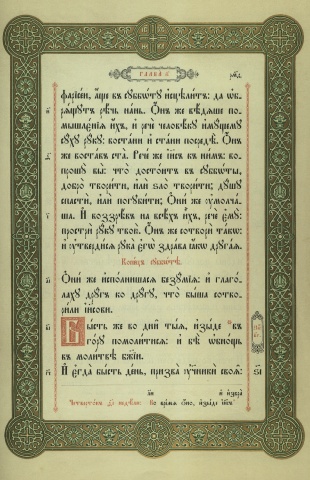 ГЛАВА ѕ҃.
фарїсеи, аще въ сꙋббѡтꙋ исцѣлитъ: да ѡб-
рѧщꙋтъ рѣчь нань. Онъ же вѣдѧше по-
мышлєнїѧ ихъ, и речѐ человѣкꙋ имꙋщемꙋ
сꙋхꙋ рꙋкꙋ: востани и стани посредѣ. Онъ
же воставъ ста. Рече же іисъ къ нимъ: во-
прошꙋ вы: что достоитъ въ сꙋббѡты,
добро творити, или ѕло творити; дꙋшꙋ
спасти, или погꙋбити; Они же ꙋмолча-
ша. И воззрѣвъ на всѣхъ ихъ, рече емꙋ:
простри рꙋкꙋ твою. Онъ же сотвори такѡ:
и ꙋтвердисѧ рꙋка егѡ здрава ꙗкѡ дрꙋгаѧ.
Конецъ сꙋббѡтѣ.
Они же исполнишасѧ безꙋмїѧ: и глаго-
лахꙋ дрꙋгъ ко дрꙋгꙋ, что быша сотво-
рили іисови.
Бысть же во дни тыѧ, изыде въ
горꙋ помолитисѧ: и бѣ ѡбнощь
въ молитвѣ бж҃їи.
И егда бысть день, призва ᲂу҆чн҃ки своѧ:
и избра
Во время ѻно, изыде іисъ